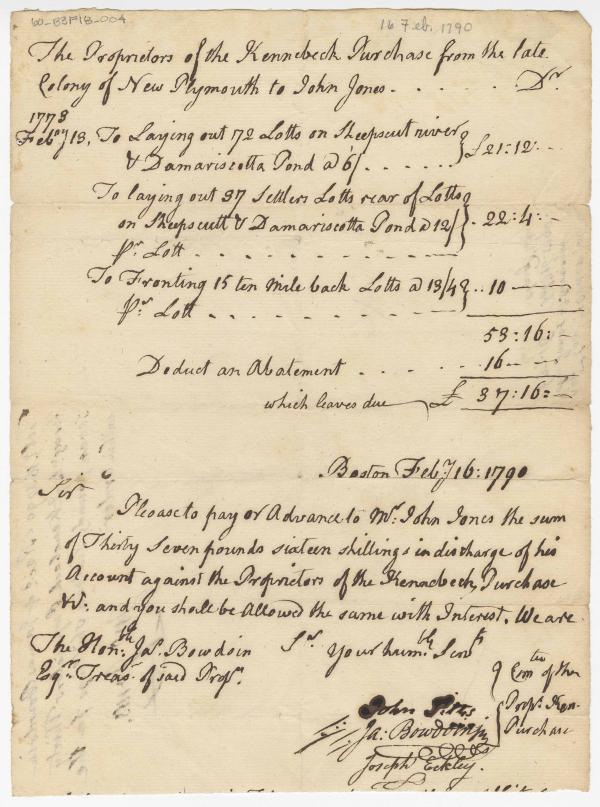 60-B3F18-004
16 Feb. 1790
The Proprietors of the Kennebeck Purchase from the late
Colony of New Plymouth to John Jones . . . . . . Dr
1773
Febry 13, To Laying out 72 Lotts on Sheepscutt river
& Damariscotta Pond @ 6/ . . . . . . £21:12..
To laying out 37 Settlers Lotts rear of Lotts
on Sheepscutt & Damariscotta Pond @ 12/ . 22:4:-
pr Lott . . . . . . . . .
To Fronting 15 ten mile back Lotts @ 13/4 . . 10
pr Lott . . . . . . . . .
53:16:-
Deduct an Abatement . . . . . . 16
which leaves due £ 37:16=
Boston Feby 16: 1790
Sir
Please to pay or Advance to Mr. John Jones the sum
of Thirty Seven pounds sixteen shillings in discharge of his
Account against the Proprietors of the Kennebeck Purchase
&c. and you shall be Allowed the same with Interest. We are
The Honble Jas. Bowdoin Sr Your humble Servts
Esqr. Treasr. of said Propr.
John Pitts
Ja: Bowdoin jr
Joseph Eckley.
Comtee of the
Propr. Ken-
Purchase